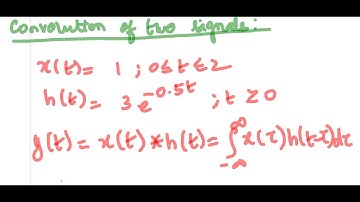 Convolution of two signals:
x(t) = 1 ; 0 ≤ t ≤ 2
h(t) = 3 e^{-0.5t} ; t ≥ 0
y(t) = x(t) * h(t) = ∫_{-∞}^{∞} x(τ) h(t-τ) dτ